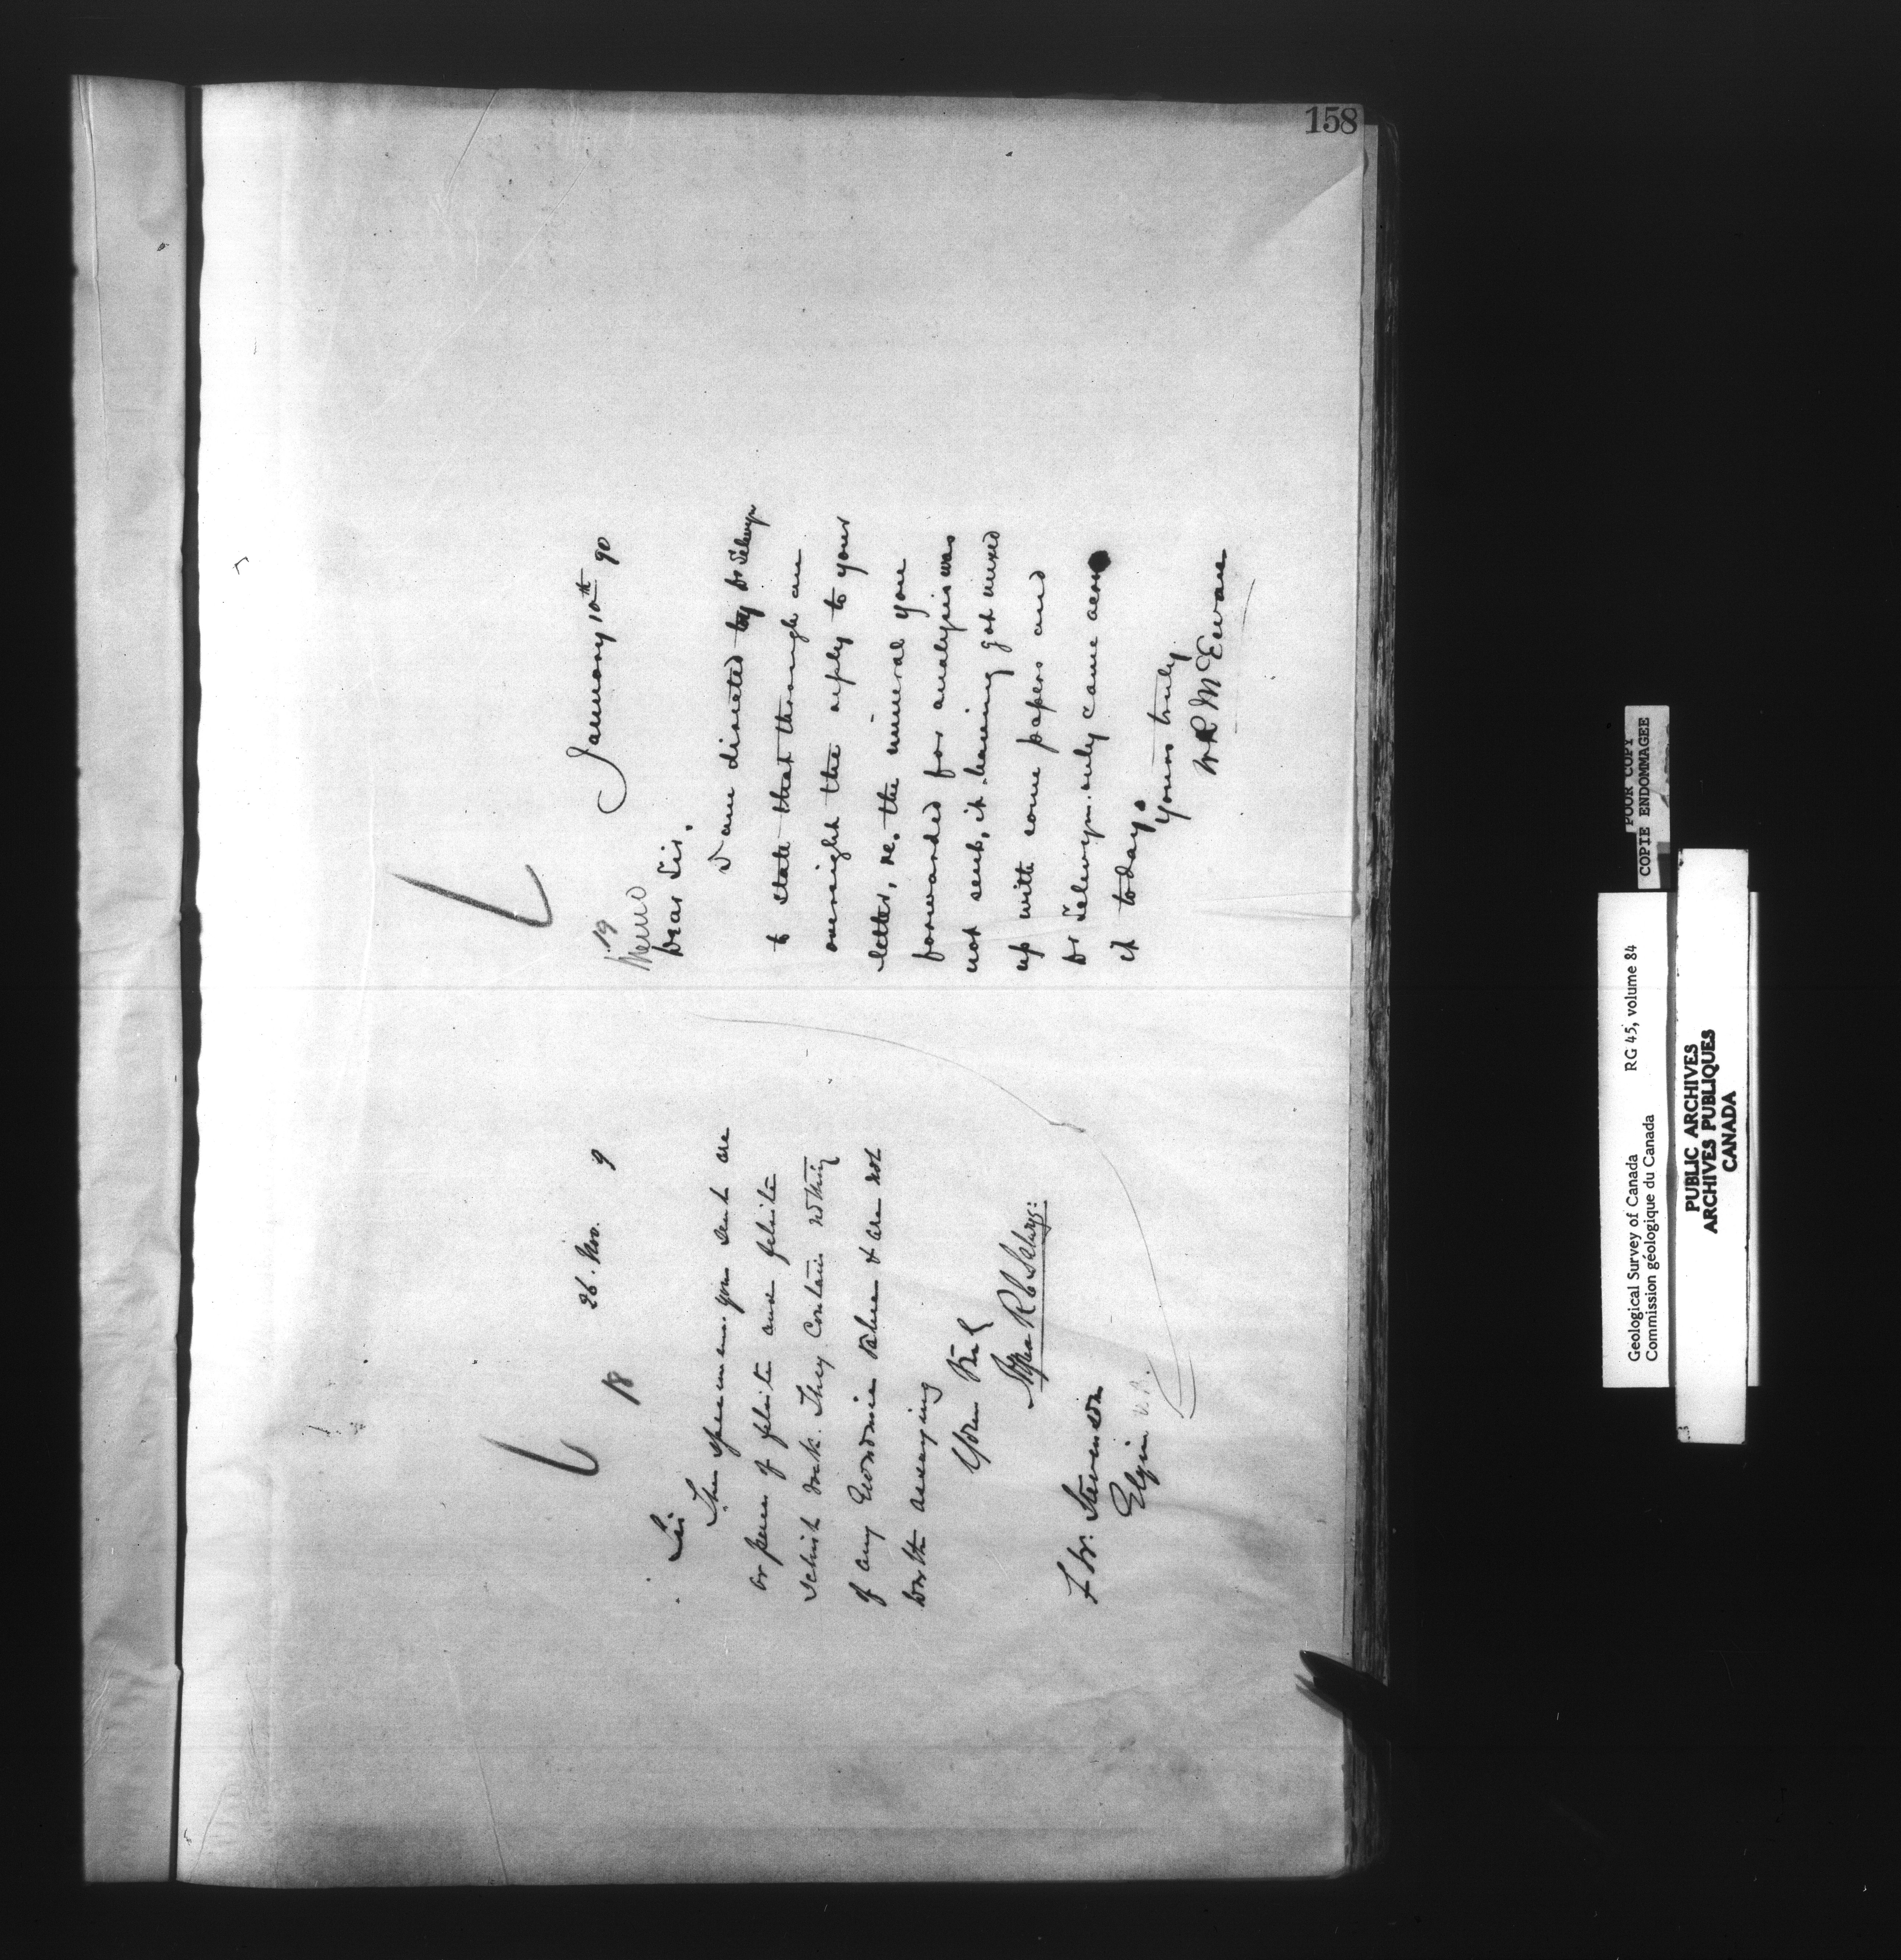 158
26. Nov. 9
18
Sir
The specimens you sent are
or pieces of felsite and felsite
schist rock. They contain nothing
of any Economic value & are not
worth assaying
Yours Truly
Alfred R C Selwyn
F W. Stevenson
Elgin N.B.
January 10th 90
19
Memo
Dear Sir.
I am directed by Dr Selwyn
to state that through an
oversight the reply to your
letter, re. the mineral you
forwarded for analysis was
not sent, it having got mixed
up with some papers and
Dr Selwyn only came across
it today.
Yours truly
W R McEwan
POOR COPY
COPIE ENDOMMAGEE
Geological Survey of Canada RG 45, volume 84
Commission géologique du Canada
PUBLIC ARCHIVES
ARCHIVES PUBLIQUES
CANADA